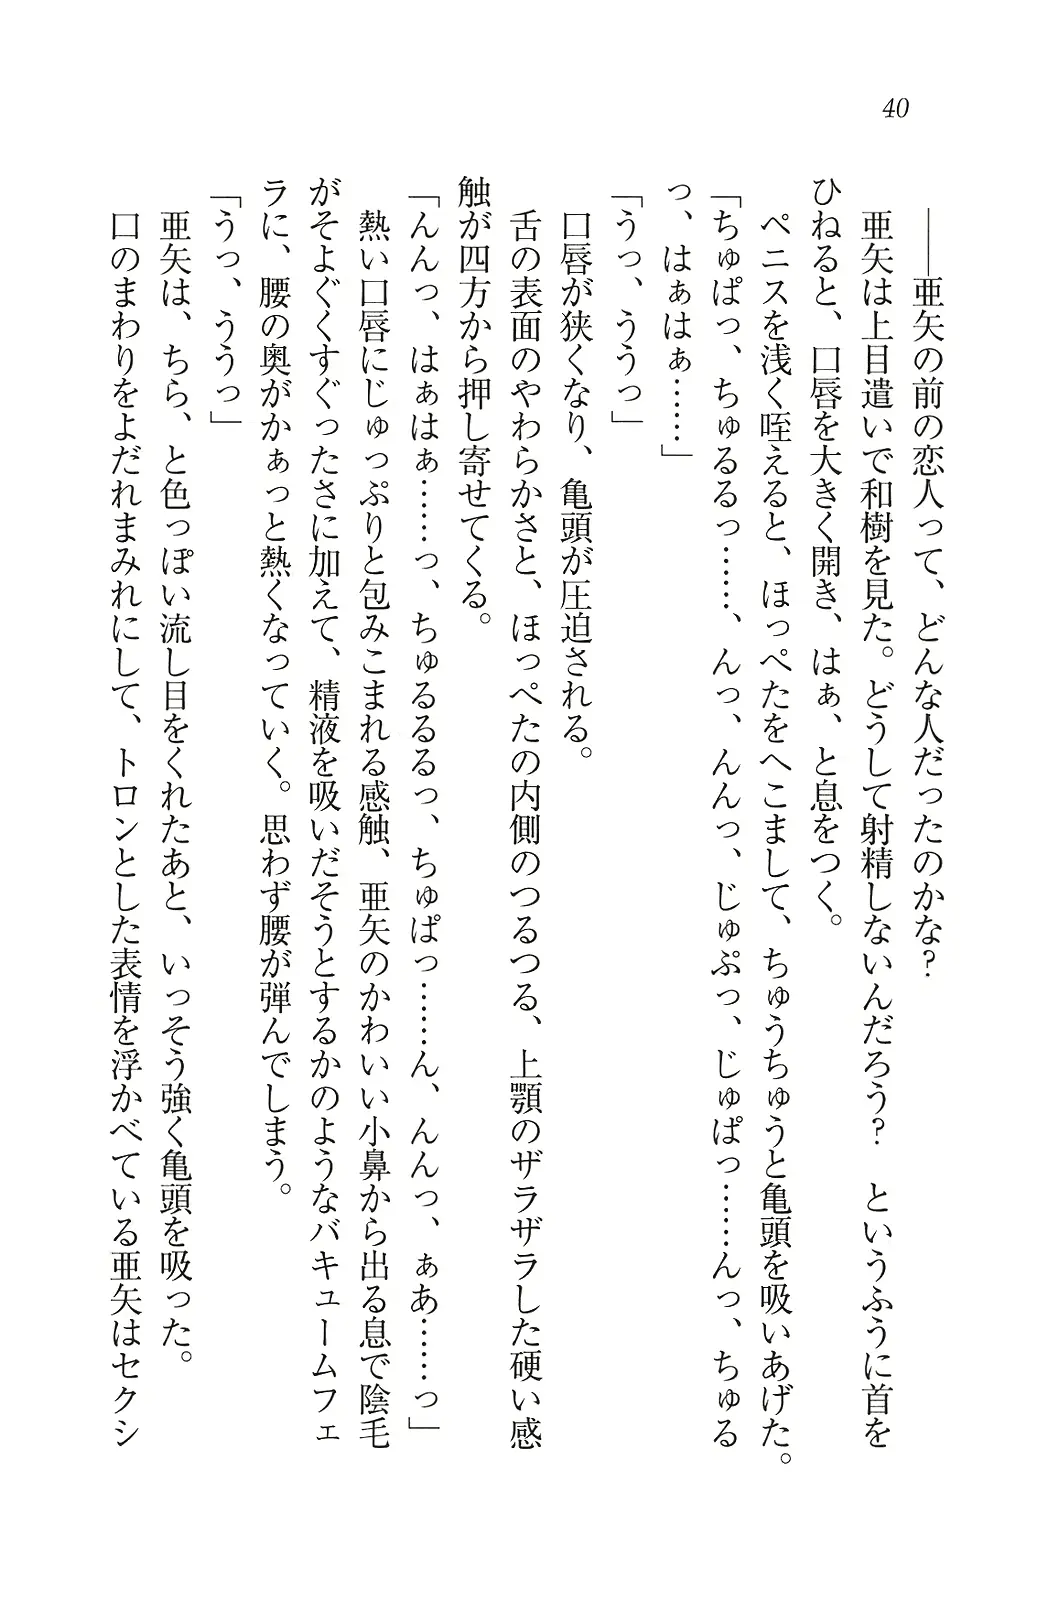 40
――亜矢の前の恋人って、どんな人だったのかな?
亜矢は上目遣いで和樹を見た。どうして射精しないんだろう? というふうに首を
ひねると、口唇を大きく開き、はぁ、と息をつく。
ペニスを浅く咥えると、ほっぺたをへこまして、ちゅうちゅうと亀頭を吸いあげた。
「ちゅぱっ、ちゅるるっ……、んっ、んんっ、じゅぷっ、じゅぱっ……んっ、ちゅる
っ、はぁはぁ……」
「うっ、ううっ」
口唇が狭くなり、亀頭が圧迫される。
舌の表面のやわらかさと、ほっぺたの内側のつるつる、上顎のザラザラした硬い感
触が四方から押し寄せてくる。
「んんっ、はぁはぁ……っ、ちゅるるるっ、ちゅぱっ……ん、んんっ、ぁあ……っ」
熱い口唇にじゅっぷりと包みこまれる感触、亜矢のかわいい小鼻から出る息で陰毛
がそよぐくすぐったさに加えて、精液を吸いだそうとするかのようなバキュームフェ
ラに、腰の奥がかぁっと熱くなっていく。思わず腰が弾んでしまう。
「うっ、ううっ」
亜矢は、ちら、と色っぽい流し目をくれたあと、いっそう強く亀頭を吸った。
口のまわりをよだれまみれにして、トロンとした表情を浮かべている亜矢はセクシ